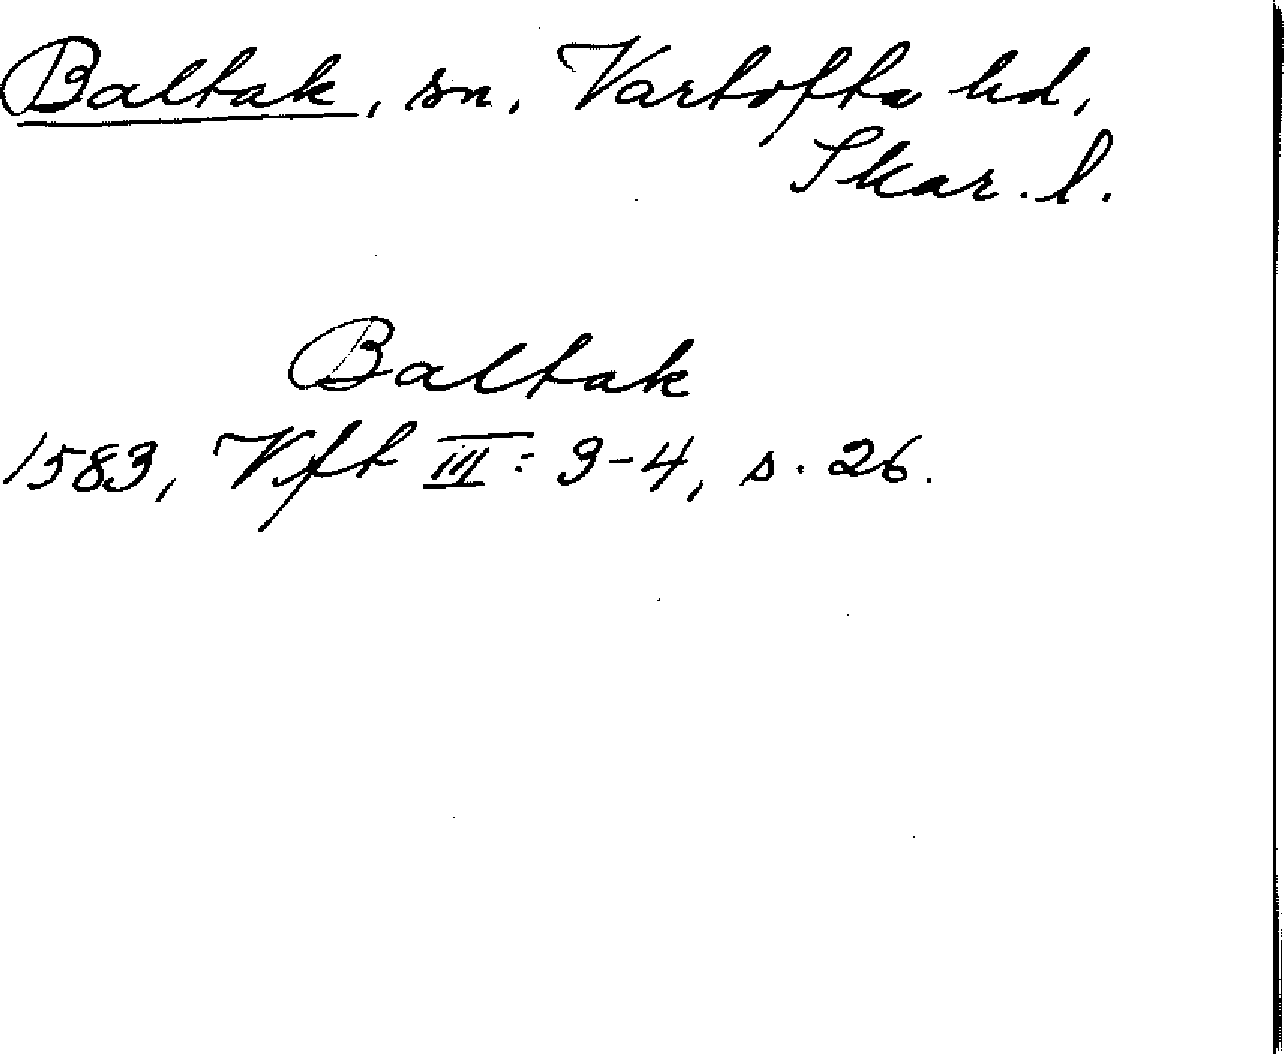 Baltak, sn, Vartofta hd,
Skar. l.
Baltak
1583, Vft III: 3-4, s. 26.